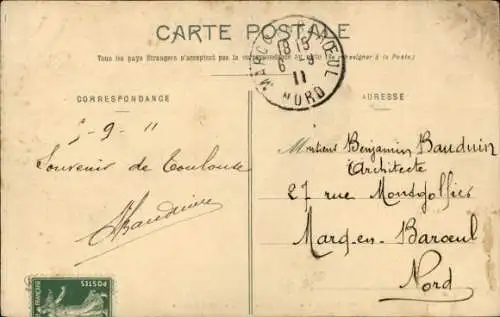 CARTE POSTALE
Tous les pays étrangers n'acceptent pas la correspondance au recto (Se renseigner à la Poste)
MARCQ EN BARŒUL
18 15
6 - 9
11
NORD
CORRESPONDANCE
ADRESSE
5-9-11
Souvenir de Toulouse
Bauduin
Monsieur Benjamin Bauduin
Architecte
27 rue Montgolfier
Marq-en-Barœul
Nord
POSTES
FRANÇAISE